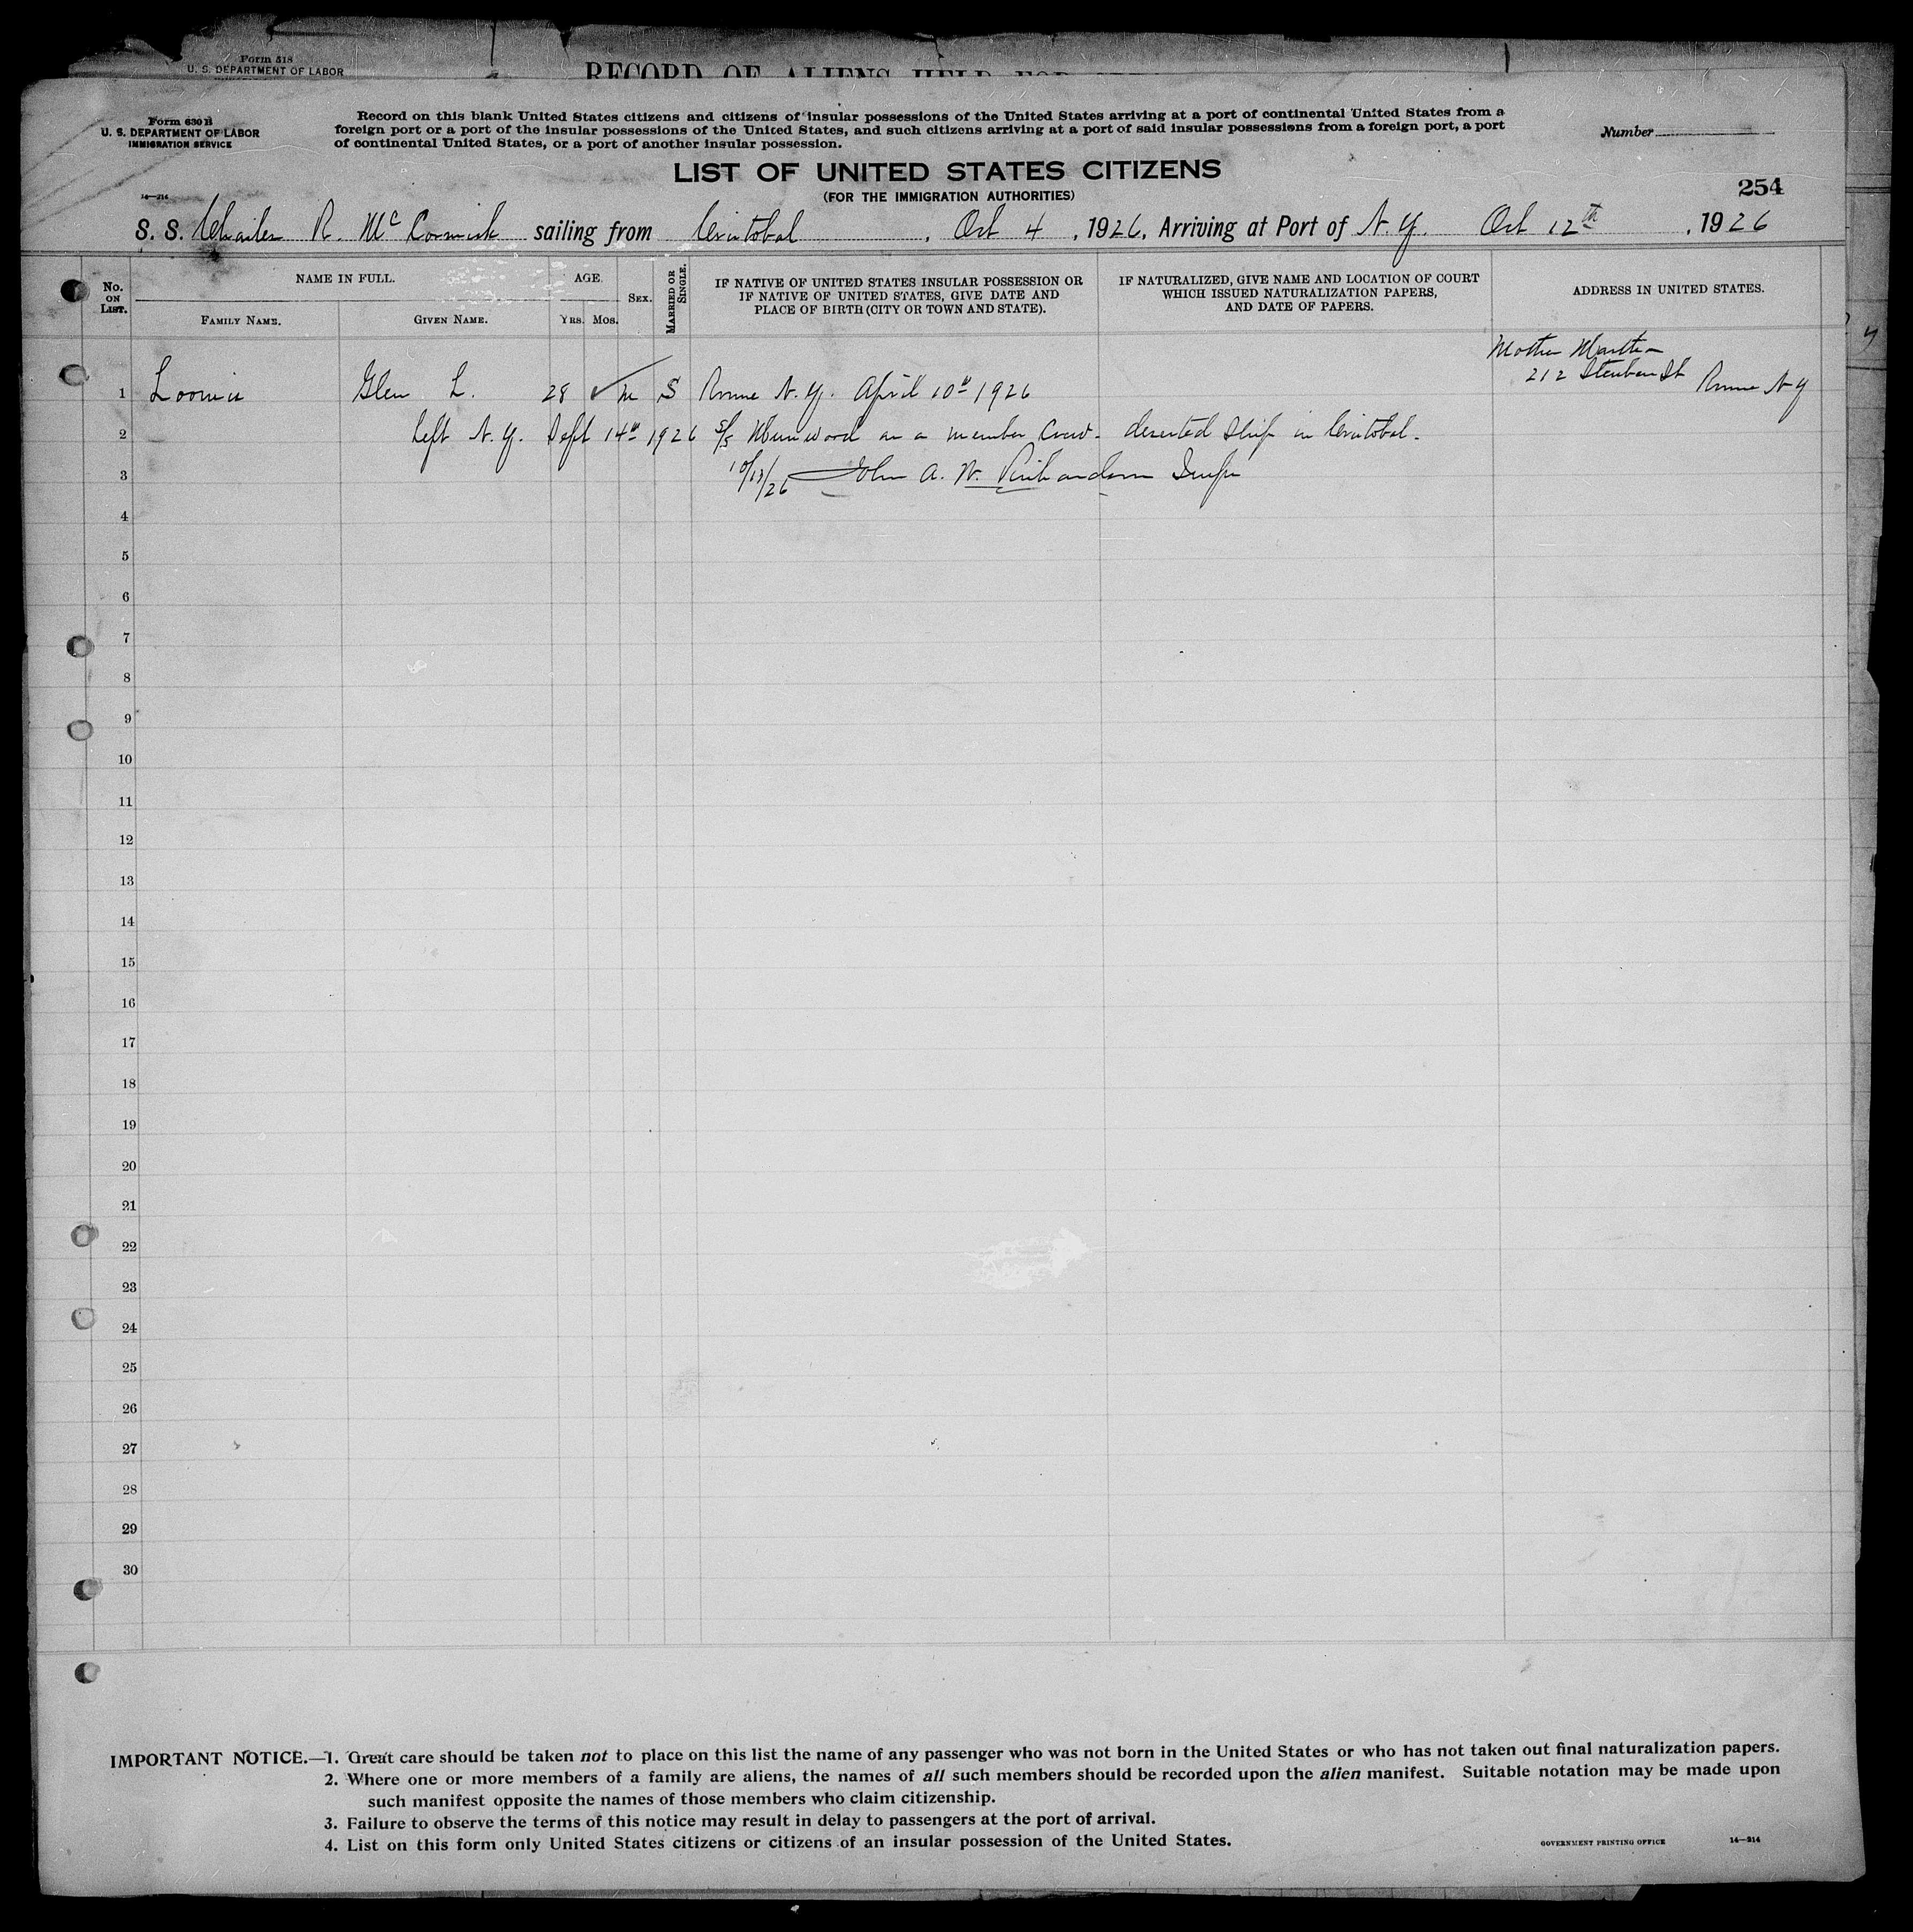 Form 518
U. S. DEPARTMENT OF LABOR
RECORD OF ALIENS HELD FOR
Form 630 B
U. S. DEPARTMENT OF LABOR
IMMIGRATION SERVICE
Record on this blank United States citizens and citizens of insular possessions of the United States arriving at a port of continental United States from a
foreign port or a port of the insular possessions of the United States, and such citizens arriving at a port of said insular possessions from a foreign port, a port
of continental United States, or a port of another insular possession.
Number
LIST OF UNITED STATES CITIZENS
(FOR THE IMMIGRATION AUTHORITIES)
14—214
254
S. S. Charles R. McCormick sailing from Cristobal, Oct 4, 1926, Arriving at Port of N.Y. Oct 12th, 1926
No. ON LIST.
NAME IN FULL.
FAMILY NAME.
GIVEN NAME.
AGE.
YRS. MOS.
SEX.
MARRIED OR SINGLE.
IF NATIVE OF UNITED STATES INSULAR POSSESSION OR
IF NATIVE OF UNITED STATES, GIVE DATE AND
PLACE OF BIRTH (CITY OR TOWN AND STATE).
IF NATURALIZED, GIVE NAME AND LOCATION OF COURT
WHICH ISSUED NATURALIZATION PAPERS,
AND DATE OF PAPERS.
ADDRESS IN UNITED STATES.
Mother Martha
212 Steuben St Rome N Y
1 Loomis Glen L. 28 ✓ m S Rome N.Y. April 10th 1926
2 Left N.Y. Sept 14th 1926 S/S Munwood as a member Crew. deserted Ship in Cristobal.
3 10/13/26 John A. W. Richardson Insp
4
5
6
7
8
9
10
11
12
13
14
15
16
17
18
19
20
21
22
23
24
25
26
27
28
29
30
IMPORTANT NOTICE.—1. Great care should be taken not to place on this list the name of any passenger who was not born in the United States or who has not taken out final naturalization papers.
2. Where one or more members of a family are aliens, the names of all such members should be recorded upon the alien manifest. Suitable notation may be made upon
such manifest opposite the names of those members who claim citizenship.
3. Failure to observe the terms of this notice may result in delay to passengers at the port of arrival.
4. List on this form only United States citizens or citizens of an insular possession of the United States.
GOVERNMENT PRINTING OFFICE 14—214